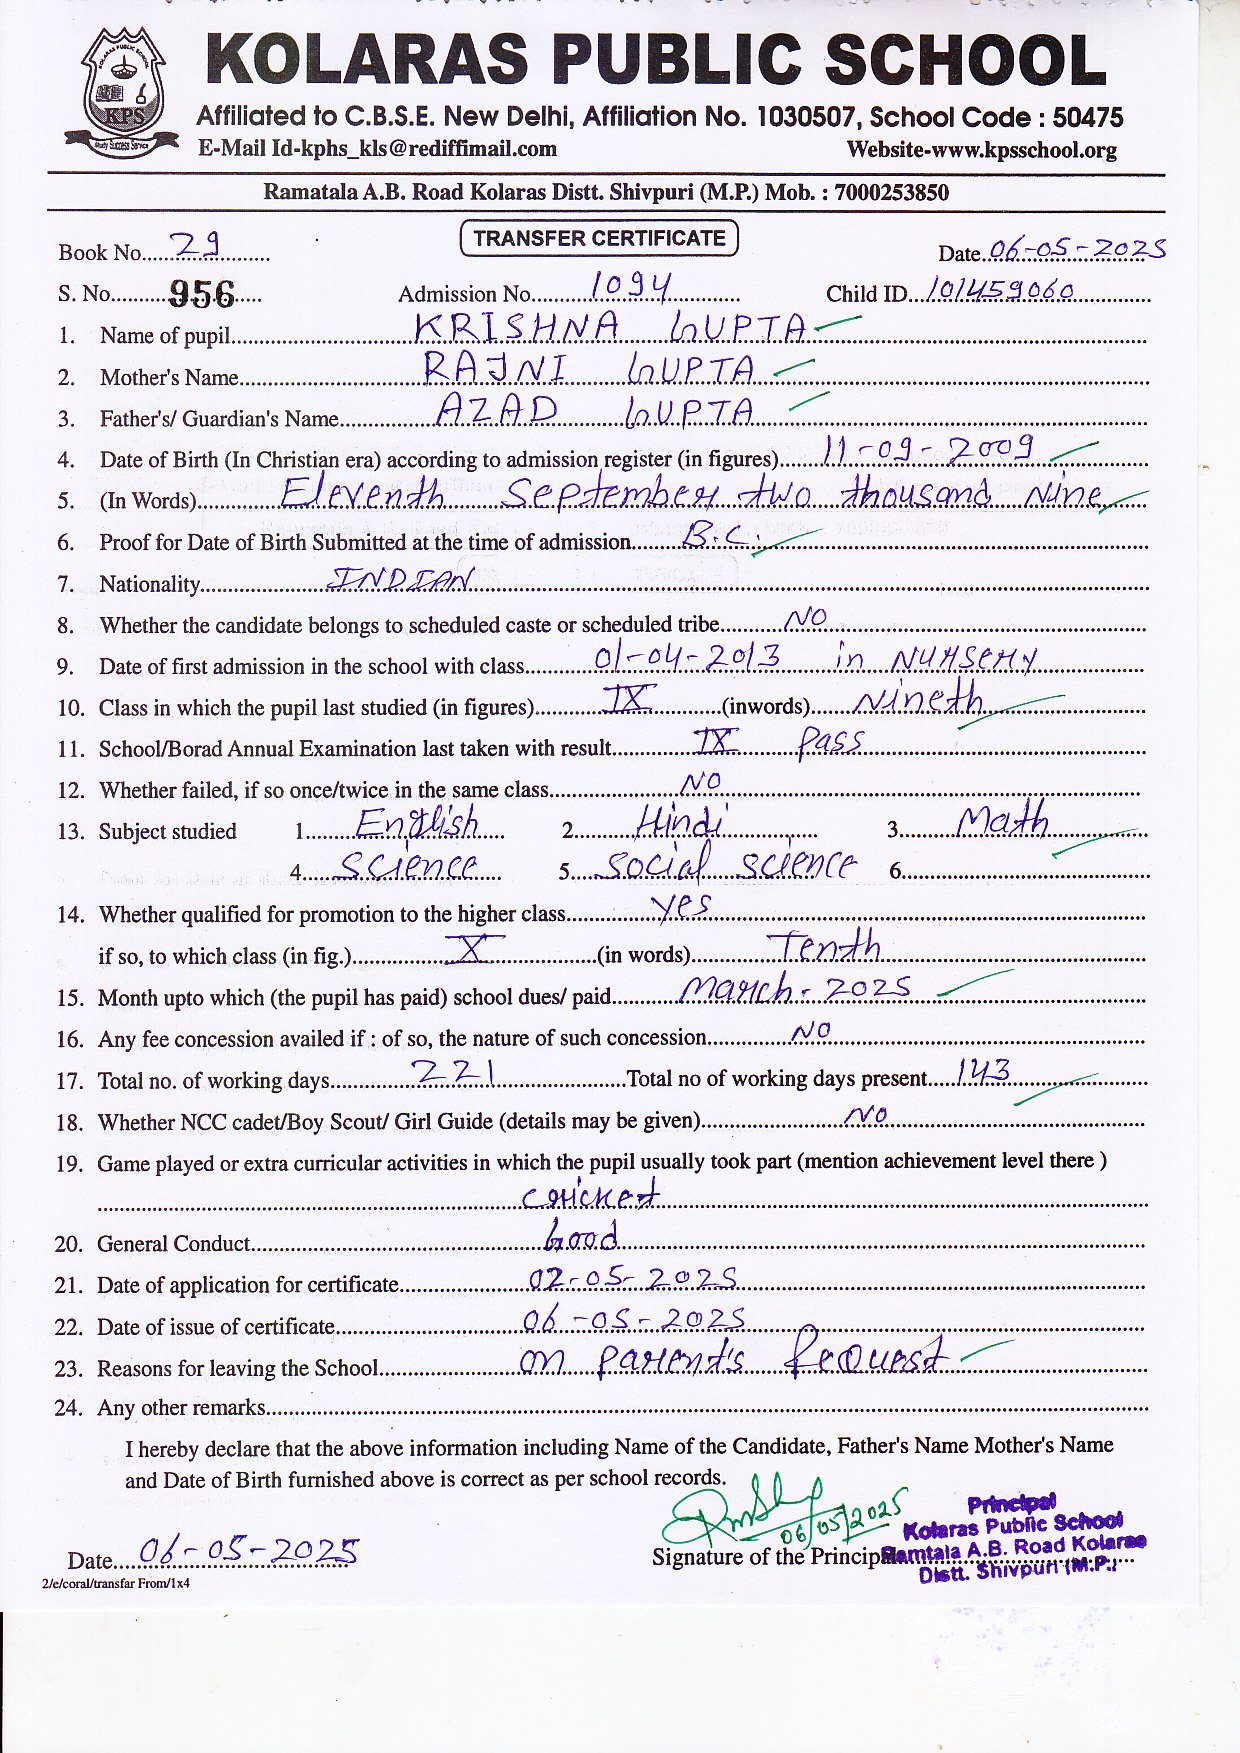 KOLARAS PUBLIC SCHOOL
KOLARAS PUBLIC SCHOOL
KPS
Study Success Service
Affiliated to C.B.S.E. New Delhi, Affiliation No. 1030507, School Code : 50475
E-Mail Id-kphs_kls@rediffimail.com Website-www.kpsschool.org
Ramatala A.B. Road Kolaras Distt. Shivpuri (M.P.) Mob. : 7000253850
TRANSFER CERTIFICATE
Book No. 29 Date 06-05-2025
S. No. 956 Admission No. 1094 Child ID 101459060
1. Name of pupil KRISHNA GUPTA
2. Mother's Name RAJNI GUPTA
3. Father's/ Guardian's Name AZAD GUPTA
4. Date of Birth (In Christian era) according to admission register (in figures) 11-09-2009
5. (In Words) Eleventh September two thousand Nine
6. Proof for Date of Birth Submitted at the time of admission B.C.
7. Nationality INDIAN
8. Whether the candidate belongs to scheduled caste or scheduled tribe NO
9. Date of first admission in the school with class 01-04-2013 in Nursery
10. Class in which the pupil last studied (in figures) IX (inwords) Nineth
11. School/Borad Annual Examination last taken with result IX Pass
12. Whether failed, if so once/twice in the same class NO
13. Subject studied 1 English 2 Hindi 3 Math
4 Science 5 Social science 6
14. Whether qualified for promotion to the higher class yes
if so, to which class (in fig.) X (in words) Tenth
15. Month upto which (the pupil has paid) school dues/ paid March - 2025
16. Any fee concession availed if : of so, the nature of such concession NO
17. Total no. of working days 221 Total no of working days present 143
18. Whether NCC cadet/Boy Scout/ Girl Guide (details may be given) NO
19. Game played or extra curricular activities in which the pupil usually took part (mention achievement level there )
cricket
20. General Conduct Good
21. Date of application for certificate 02-05-2025
22. Date of issue of certificate 06-05-2025
23. Reasons for leaving the School on parent's Request
24. Any other remarks
I hereby declare that the above information including Name of the Candidate, Father's Name Mother's Name
and Date of Birth furnished above is correct as per school records.
06/05/2025
Principal
Kolaras Public School
Ramtala A.B. Road Kolaras
Distt. Shivpuri (M.P.)
Date 06-05-2025 Signature of the Principal
2/e/coral/transfar From/1x4